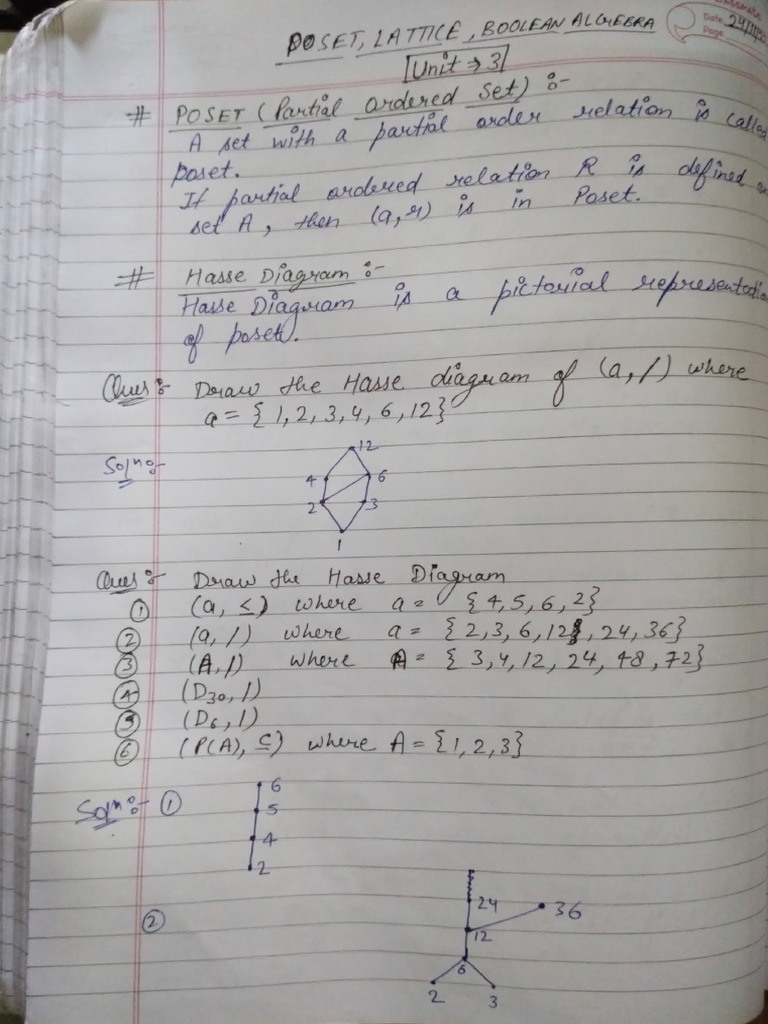 POSET, LATTICE, BOOLEAN ALGEBRA
Date 24/11/
Page
[Unit → 3]
# POSET (Partial ordered set) :-
A set with a partial order relation is called
poset.
If partial ordered relation R is defined on
set A, then (a, r) is in Poset.
# Hasse Diagram :-
Hasse Diagram is a pictorial representation
of poset.
Ques :- Draw the Hasse diagram of (a, /) where
a = { 1, 2, 3, 4, 6, 12}
Soln :-
12
4 6
2 3
1
Ques :- Draw the Hasse Diagram
① (a, ≤) where a = {4, 5, 6, 2}
② (a, /) where a = {2, 3, 6, 12, 24, 36}
③ (A, /) where A = {3, 4, 12, 24, 48, 72}
④ (D30, /)
⑤ (D6, /)
⑥ (P(A), ⊆) where A = {1, 2, 3}
Soln :- ①
6
5
4
2
②
24 36
12
6
2 3